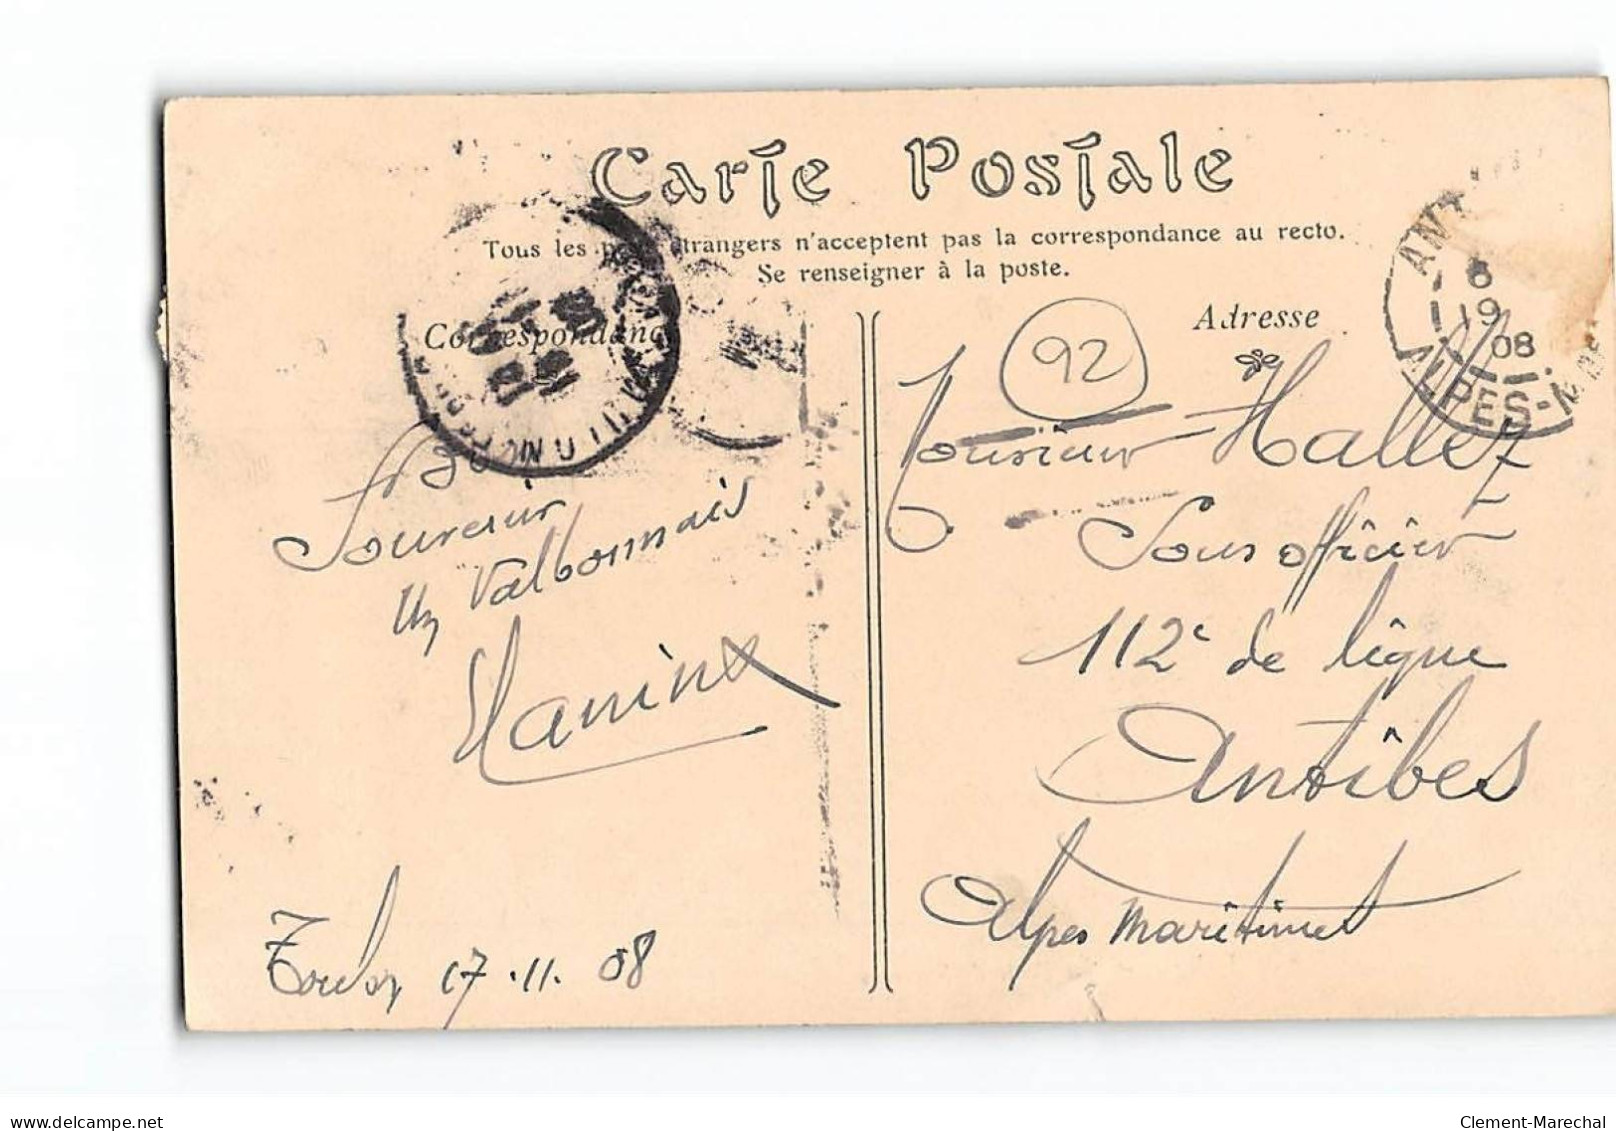 Carte Postale
Tous les pays étrangers n'acceptent pas la correspondance au recto.
Se renseigner à la poste.
Correspondance
Adresse
92
ALPES-M
19
08
Souvenir
Un Valbonnais
Toulon 17.11.08
Monsieur Hallez
Sous officier
112e de ligne
Antibes
Alpes Maritimes
delcampe.net
Clement-Marechal